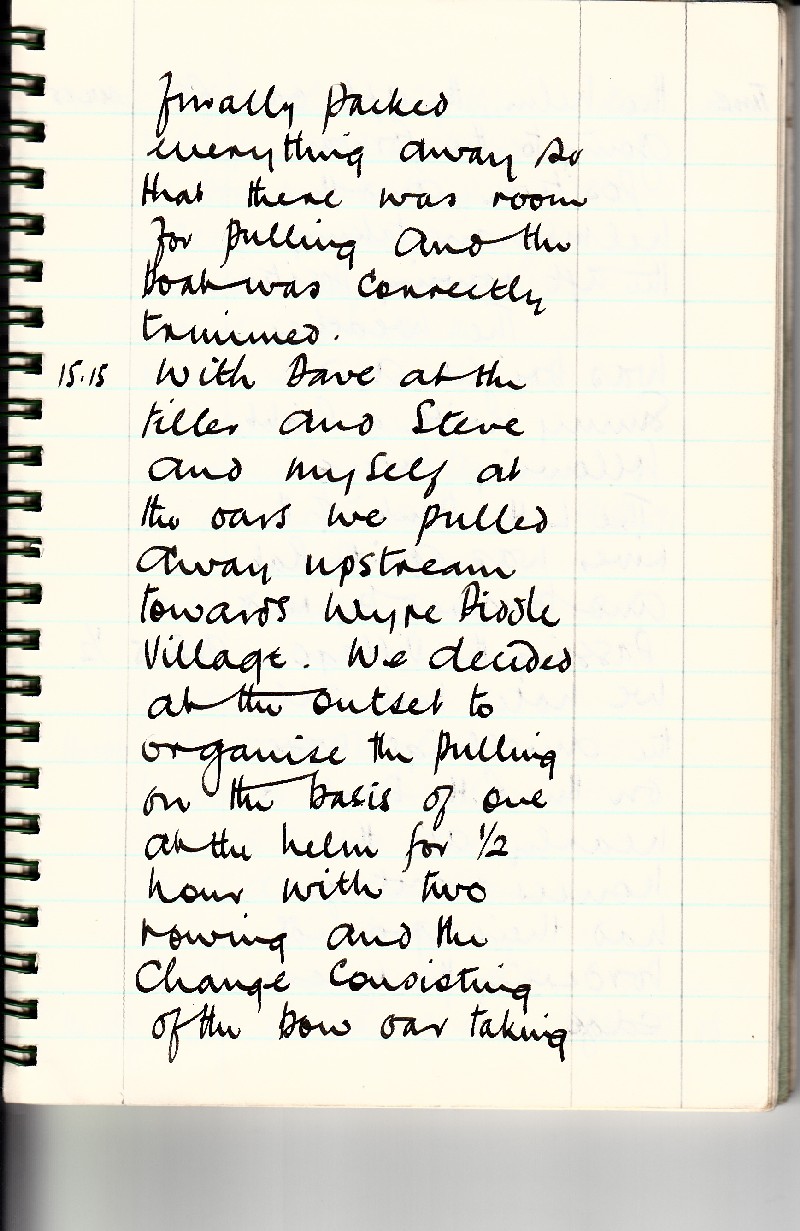 finally packed
everything away so
that there was room
for pulling and the
boat was correctly
trimmed.
15.15 With Dave at the
tiller and Steve
and myself at
the oars we pulled
away upstream
towards Wyre Piddle
Village. We decided
at the outset to
organise the pulling
on the basis of one
at the helm for 1/2
hour with two
rowing and the
Change Consisting
of the bow oar taking